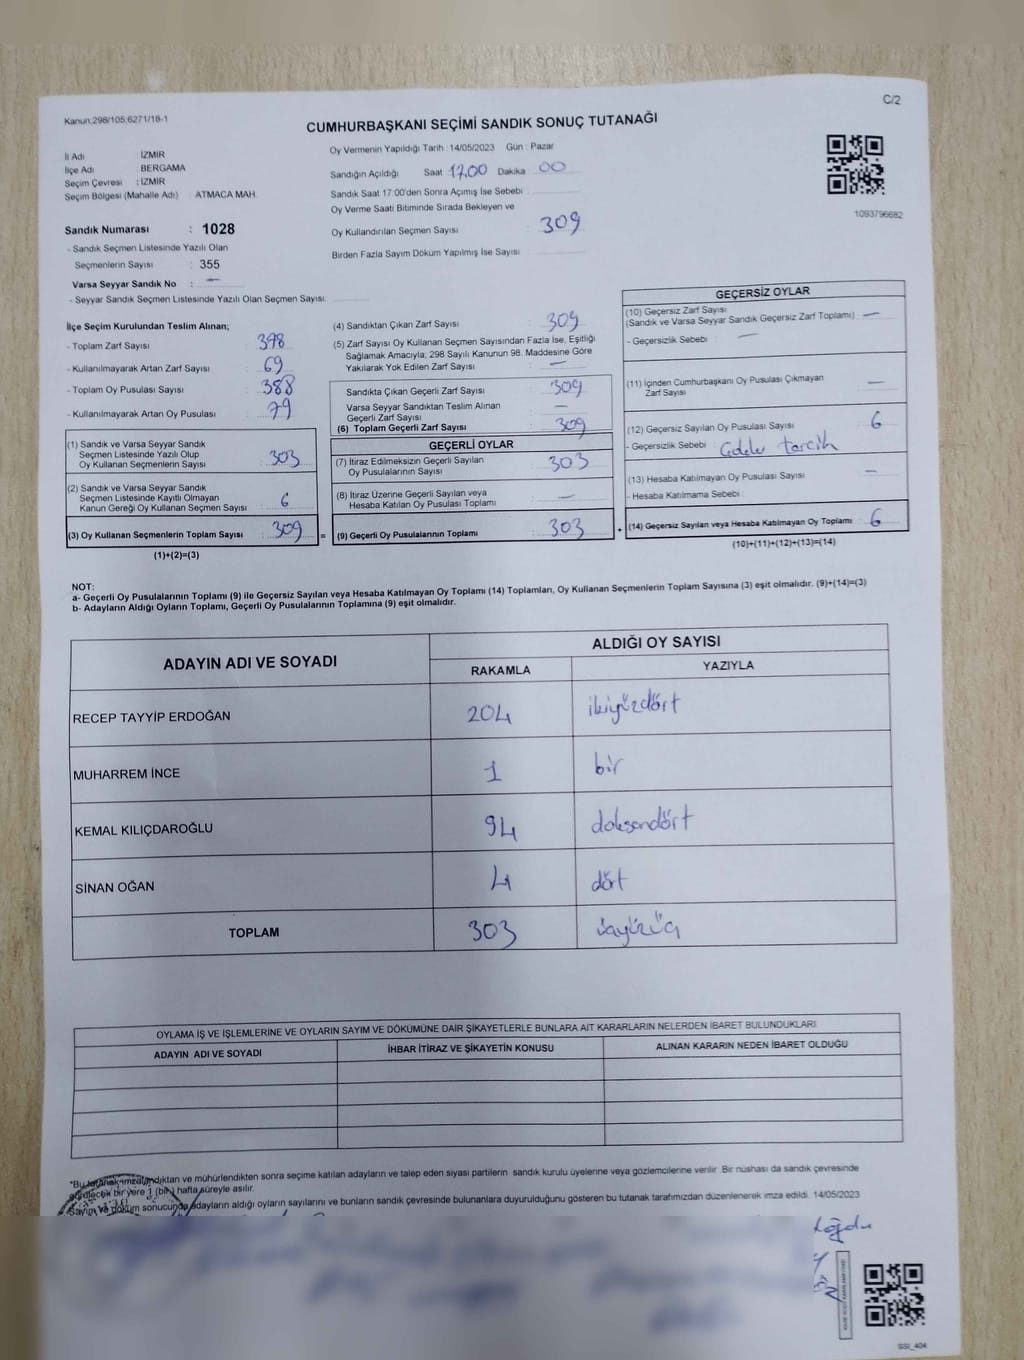 C/2
Kanun:298/105;6271/18-1
CUMHURBAŞKANI SEÇİMİ SANDIK SONUÇ TUTANAĞI
İl Adı İZMİR
İlçe Adı BERGAMA
Seçim Çevresi : İZMİR
Seçim Bölgesi (Mahalle Adı) : ATMACA MAH.
Oy Vermenin Yapıldığı Tarih : 14/05/2023 Gün : Pazar
Sandığın Açıldığı Saat 17.00 Dakika 00
Sandık Saat 17:00'den Sonra Açılmış İse Sebebi :
Oy Verme Saati Bitiminde Sırada Bekleyen ve
Oy Kullandırılan Seçmen Sayısı : 309
Birden Fazla Sayım Döküm Yapılmış İse Sayısı :
1093796682
Sandık Numarası : 1028
- Sandık Seçmen Listesinde Yazılı Olan
Seçmenlerin Sayısı : 355
Varsa Seyyar Sandık No : —
- Seyyar Sandık Seçmen Listesinde Yazılı Olan Seçmen Sayısı:
İlçe Seçim Kurulundan Teslim Alınan;
- Toplam Zarf Sayısı : 378
- Kullanılmayarak Artan Zarf Sayısı : 69
- Toplam Oy Pusulası Sayısı : 388
- Kullanılmayarak Artan Oy Pusulası : 79
(1) Sandık ve Varsa Seyyar Sandık
Seçmen Listesinde Yazılı Olup
Oy Kullanan Seçmenlerin Sayısı : 303
(2) Sandık ve Varsa Seyyar Sandık
Seçmen Listesinde Kayıtlı Olmayan
Kanun Gereği Oy Kullanan Seçmen Sayısı : 6
(3) Oy Kullanan Seçmenlerin Toplam Sayısı : 309
(1)+(2)=(3)
(4) Sandıktan Çıkan Zarf Sayısı : 309
(5) Zarf Sayısı Oy Kullanan Seçmen Sayısından Fazla İse, Eşitliği
Sağlamak Amacıyla; 298 Sayılı Kanunun 98. Maddesine Göre
Yakılarak Yok Edilen Zarf Sayısı : —
Sandıkta Çıkan Geçerli Zarf Sayısı : 309
Varsa Seyyar Sandıktan Teslim Alınan
Geçerli Zarf Sayısı : —
(6) Toplam Geçerli Zarf Sayısı : 309
GEÇERLİ OYLAR
(7) İtiraz Edilmeksizin Geçerli Sayılan
Oy Pusulalarının Sayısı : 303
(8) İtiraz Üzerine Geçerli Sayılan veya
Hesaba Katılan Oy Pusulası Toplamı : —
= (9) Geçerli Oy Pusulalarının Toplamı : 303 +
GEÇERSİZ OYLAR
(10) Geçersiz Zarf Sayısı
(Sandık ve Varsa Seyyar Sandık Geçersiz Zarf Toplamı) : —
- Geçersizlik Sebebi : —
(11) İçinden Cumhurbaşkanı Oy Pusulası Çıkmayan
Zarf Sayısı : —
(12) Geçersiz Sayılan Oy Pusulası Sayısı : 6
- Geçersizlik Sebebi : tercih
(13) Hesaba Katılmayan Oy Pusulası Sayısı : —
- Hesaba Katılmama Sebebi :
(14) Geçersiz Sayılan veya Hesaba Katılmayan Oy Toplamı : 6
(10)+(11)+(12)+(13)=(14)
NOT:
a- Geçerli Oy Pusulalarının Toplamı (9) ile Geçersiz Sayılan veya Hesaba Katılmayan Oy Toplamı (14) Toplamları, Oy Kullanan Seçmenlerin Toplam Sayısına (3) eşit olmalıdır. (9)+(14)=(3)
b- Adayların Aldığı Oyların Toplamı, Geçerli Oy Pusulalarının Toplamına (9) eşit olmalıdır.
ADAYIN ADI VE SOYADI ALDIĞI OY SAYISI
RAKAMLA YAZIYLA
RECEP TAYYİP ERDOĞAN 204 ikiyüzdört
MUHARREM İNCE 1 bir
KEMAL KILIÇDAROĞLU 94 doksandört
SİNAN OĞAN 4 dört
TOPLAM 303 üçyüzüç
OYLAMA İŞ VE İŞLEMLERİNE VE OYLARIN SAYIM VE DÖKÜMÜNE DAİR ŞİKAYETLERLE BUNLARA AİT KARARLARIN NELERDEN İBARET BULUNDUKLARI
ADAYIN ADI VE SOYADI İHBAR İTİRAZ VE ŞİKAYETİN KONUSU ALINAN KARARIN NEDEN İBARET OLDUĞU
*Bu tutanak imzalandıktan ve mühürlendikten sonra seçime katılan adayların ve talep eden siyasi partilerin sandık kurulu üyelerine veya gözlemcilerine verilir. Bir nüshası da sandık çevresinde
görülecek bir yere 1 (bir) hafta süreyle asılır.
Sayım ve döküm sonucunda adayların aldığı oyların sayılarını ve bunların sandık çevresinde bulunanlara duyurulduğunu gösteren bu tutanak tarafımızdan düzenlenerek imza edildi. 14/05/2023
SSI_404